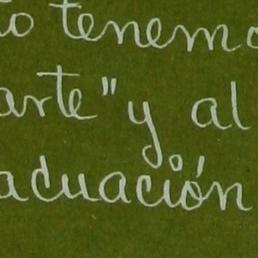 to tenemo
arte" y al
aduación